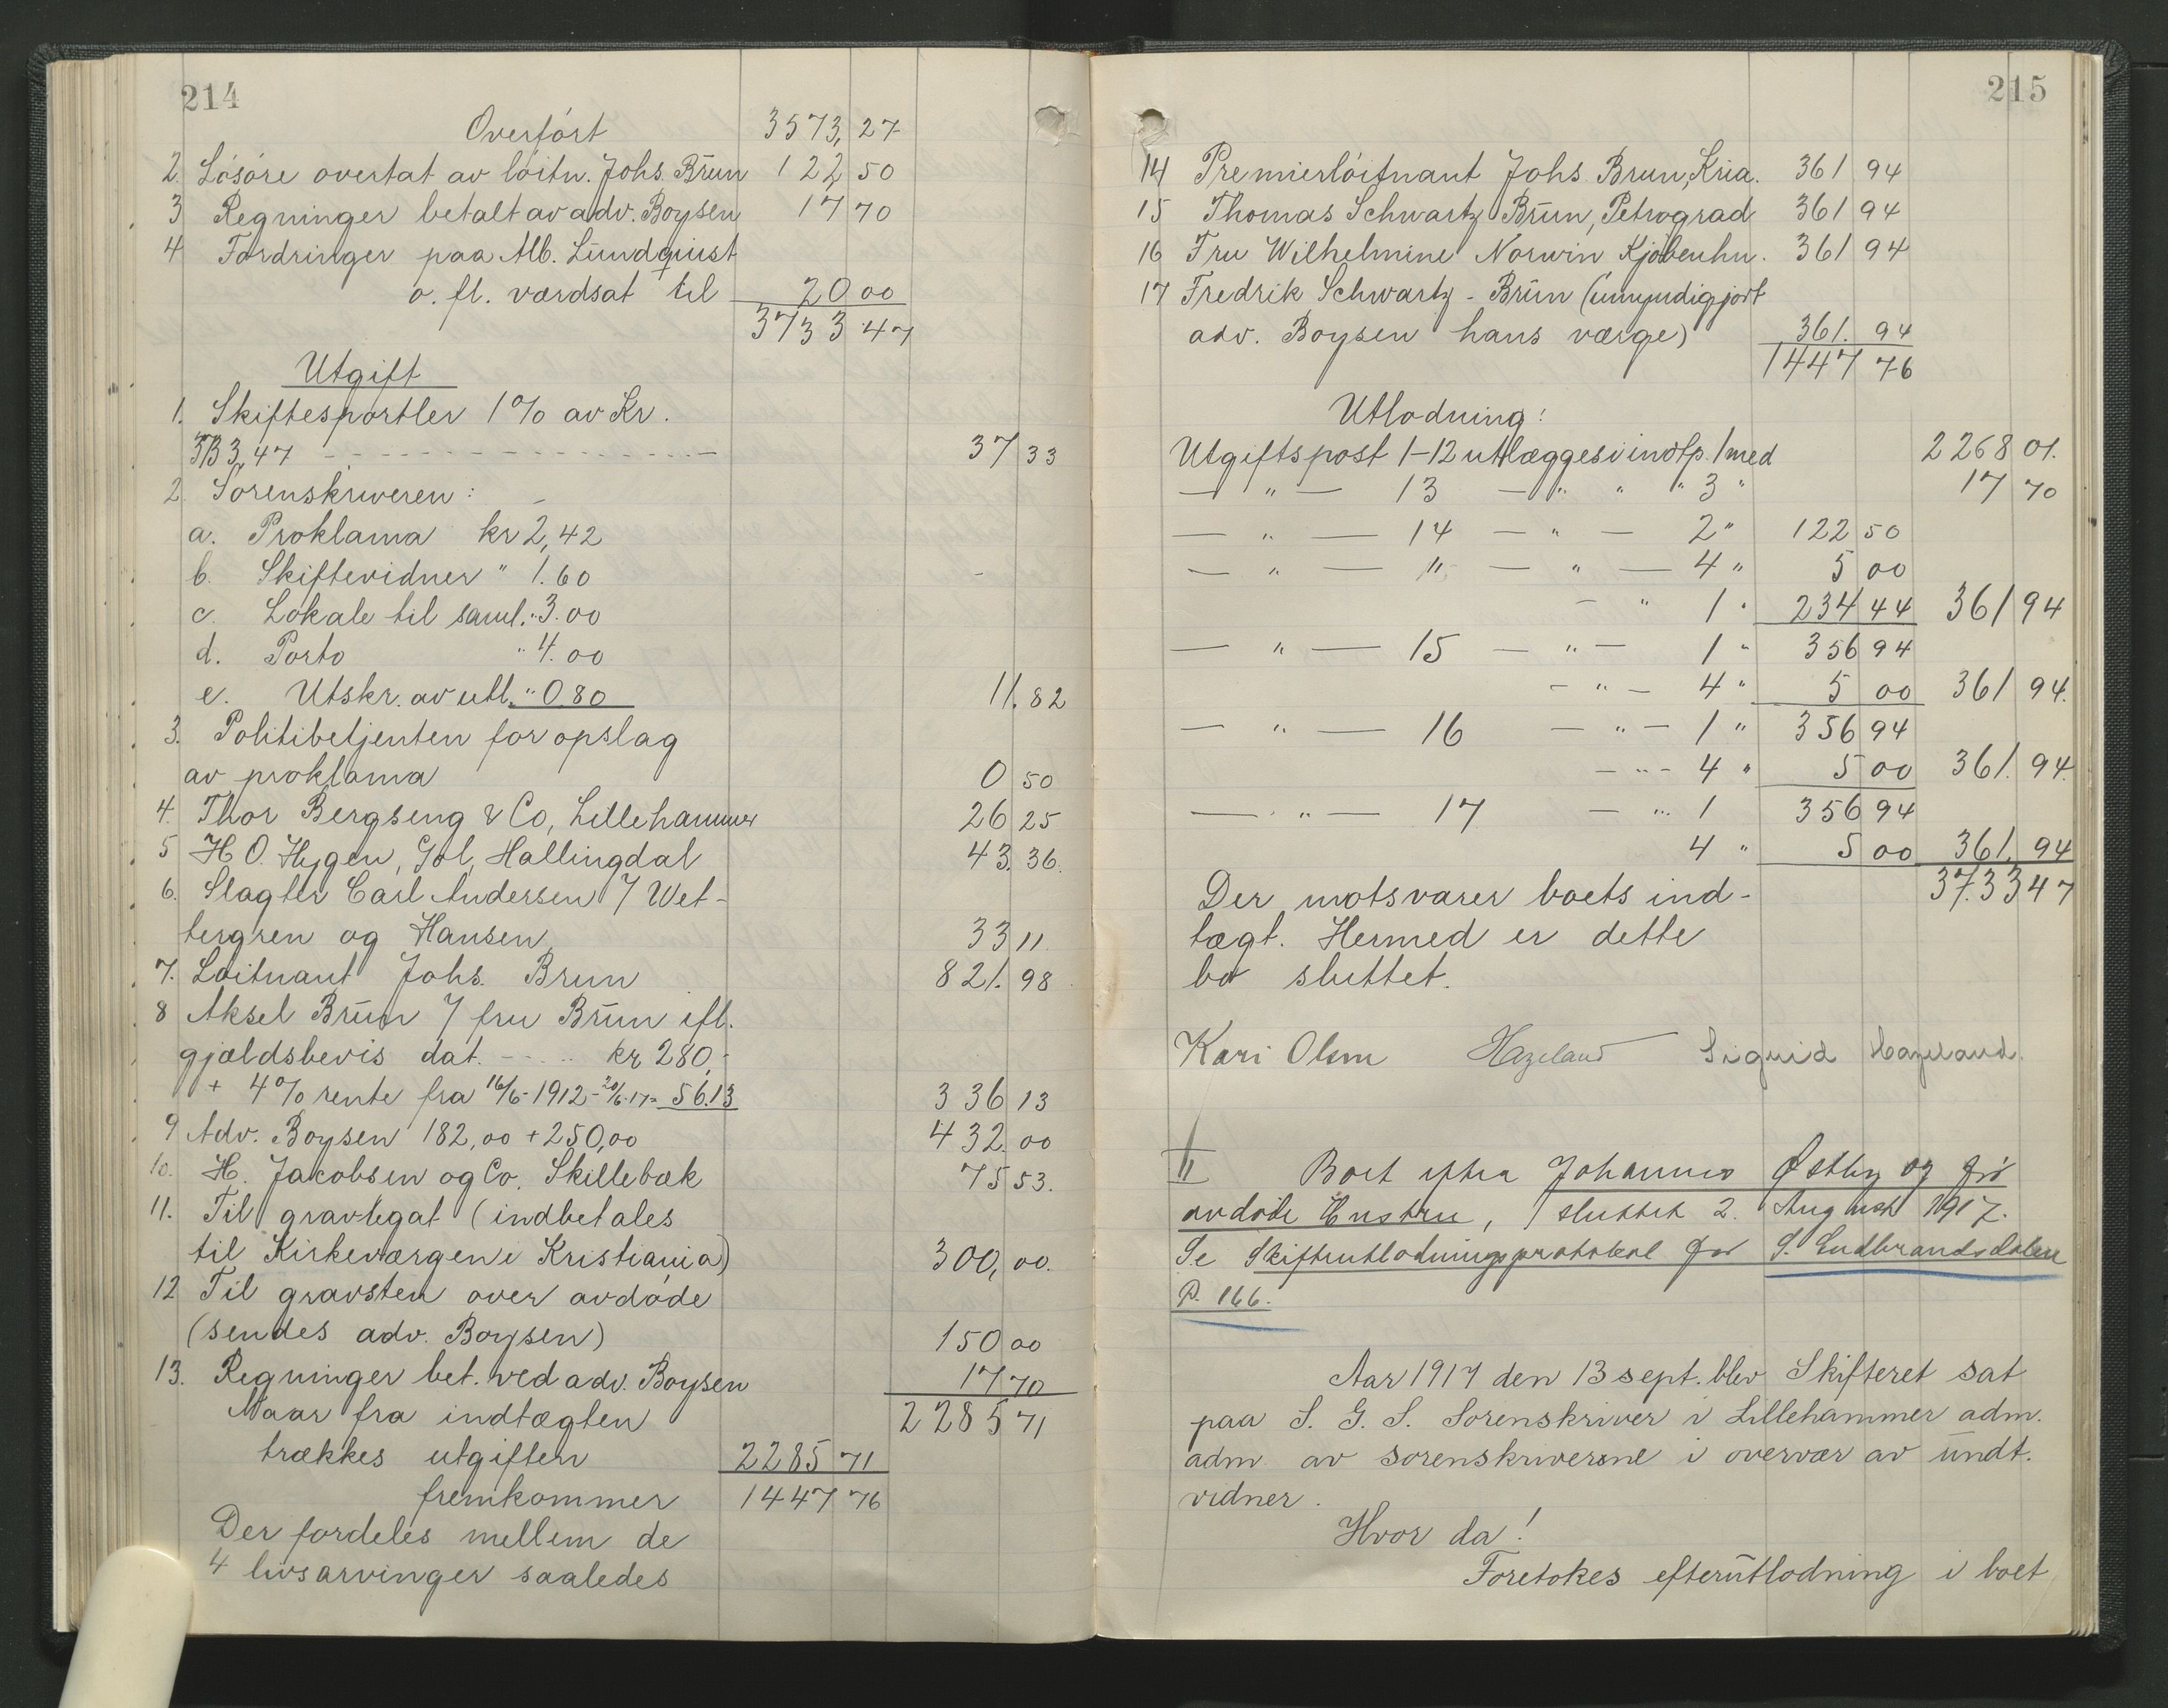 214
Overført 3573,27
2. Løsøre overtat av løitn. Johs. Brun 122 50
3 Regninger betalt av adv. Boysen 17 70
4 Fordringer paa Alb. Lundquist
o. fl. værdsat til 20 00
3733 47
Utgift
1. Skiftesportler 1% av Kr.
3733,47 - - - - - - - - - 37 33
2. Sorenskriveren:
a. Proklama kr 2,42
b. Skiftevidner " 1.60
c. Lokale til saml. " 3.00
d. Porto " 4.00
e. Utskr. av utl. " 0.80 11.82
3. Politibetjenten for opslag
av proklama 0 50
4. Thor Bergseng & Co, Lillehammer 26 25
5 H. O. Hygen, Gol, Hallingdal 43.36.
6. Slagter Carl Andersen 7 Wet-
tergren og Hansen 33 11
7. Løitnant Johs. Brun 821.98
8 Aksel Brun 7 fru Brun ifl.
gjældsbevis dat. - - .. kr 280,-
+ 4% rente fra 16/6-1912-20/6-17= 56.13 336 13
9 Adv. Boysen 182,00 + 250,00 432.00
10. H. Jacobsen og Co. Skillebæk 75 53.
11. Til gravlegat (indbetales
til Kirkeværgen i Kristiania) 300,00.
12 Til gravsten over avdøde
(sendes adv. Boysen) 150 00
13. Regninger bet. ved adv. Boysen 17 70
Naar fra indtægten 2285 71
trækkes utgiften 2285 71
fremkommer 1447 76
Der fordeles mellem de
4 livsarvinger saaledes
215
14 Premierløitnant Johs. Brun, Kria. 361 94
15 Thomas Schwartz Brun, Petrograd 361 94
16 Fru Wilhelmine Norwin Kjøbenhn. 361 94
17 Fredrik Schwartz-Brun (umyndiggjort
adv. Boysen hans værge) 361.94
1447 76
Utlodning:
Utgiftspost 1-12 utlægges i indtp. 1 med 2268 01.
— " — 13 — " " " 3 " 17 70
— " — 14 — " — 2 " 122 50
— " — " — " — 4 " 5 00
— " 1 " 234 44 361 94
— " — 15 — " — 1 " 356 94
— " — 4 " 5 00 361 94.
— " — 16 — " — 1 " 356 94
— " — 4 " 5 00 361.94.
— " — 17 — " 1 356 94
4 " 5 00 361.94
Der motsvarer boets ind- 3733 47
tægt. Hermed er dette
bo sluttet.
Kari Olsen Hazeland Sigrid Hazeland.
II Boet efter Johannes Østby og før
avdøde Hustru, sluttet 2. August 1917.
Se Skifteutlodningsprotokol for S. Gudbrandsdalen
P. 166.
Aar 1917 den 13 sept. blev Skifteret sat
paa S. G. S. Sorenskriver i Lillehammer adm.
adm. av sorenskriverne i overvær av undt.
vidner.
Hvor da!
Foretokes efterutlodning i boet